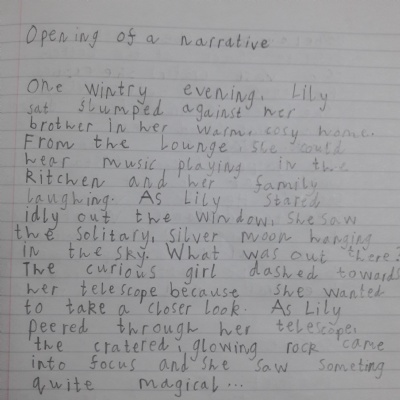 Opening of a narrative
One wintry evening, Lily
sat slumped against her
brother in her warm, cosy home.
From the Lounge, she could
hear music playing in the
kitchen and her family
laughing. As Lily stared
idly out the window, she saw
the solitary, silver moon hanging
in the sky. What was out there?
The curious girl dashed towards
her telescope because she wanted
to take a closer look. As Lily
peered through her telescope,
the cratered, glowing rock came
into focus and she saw someting
quite magical...